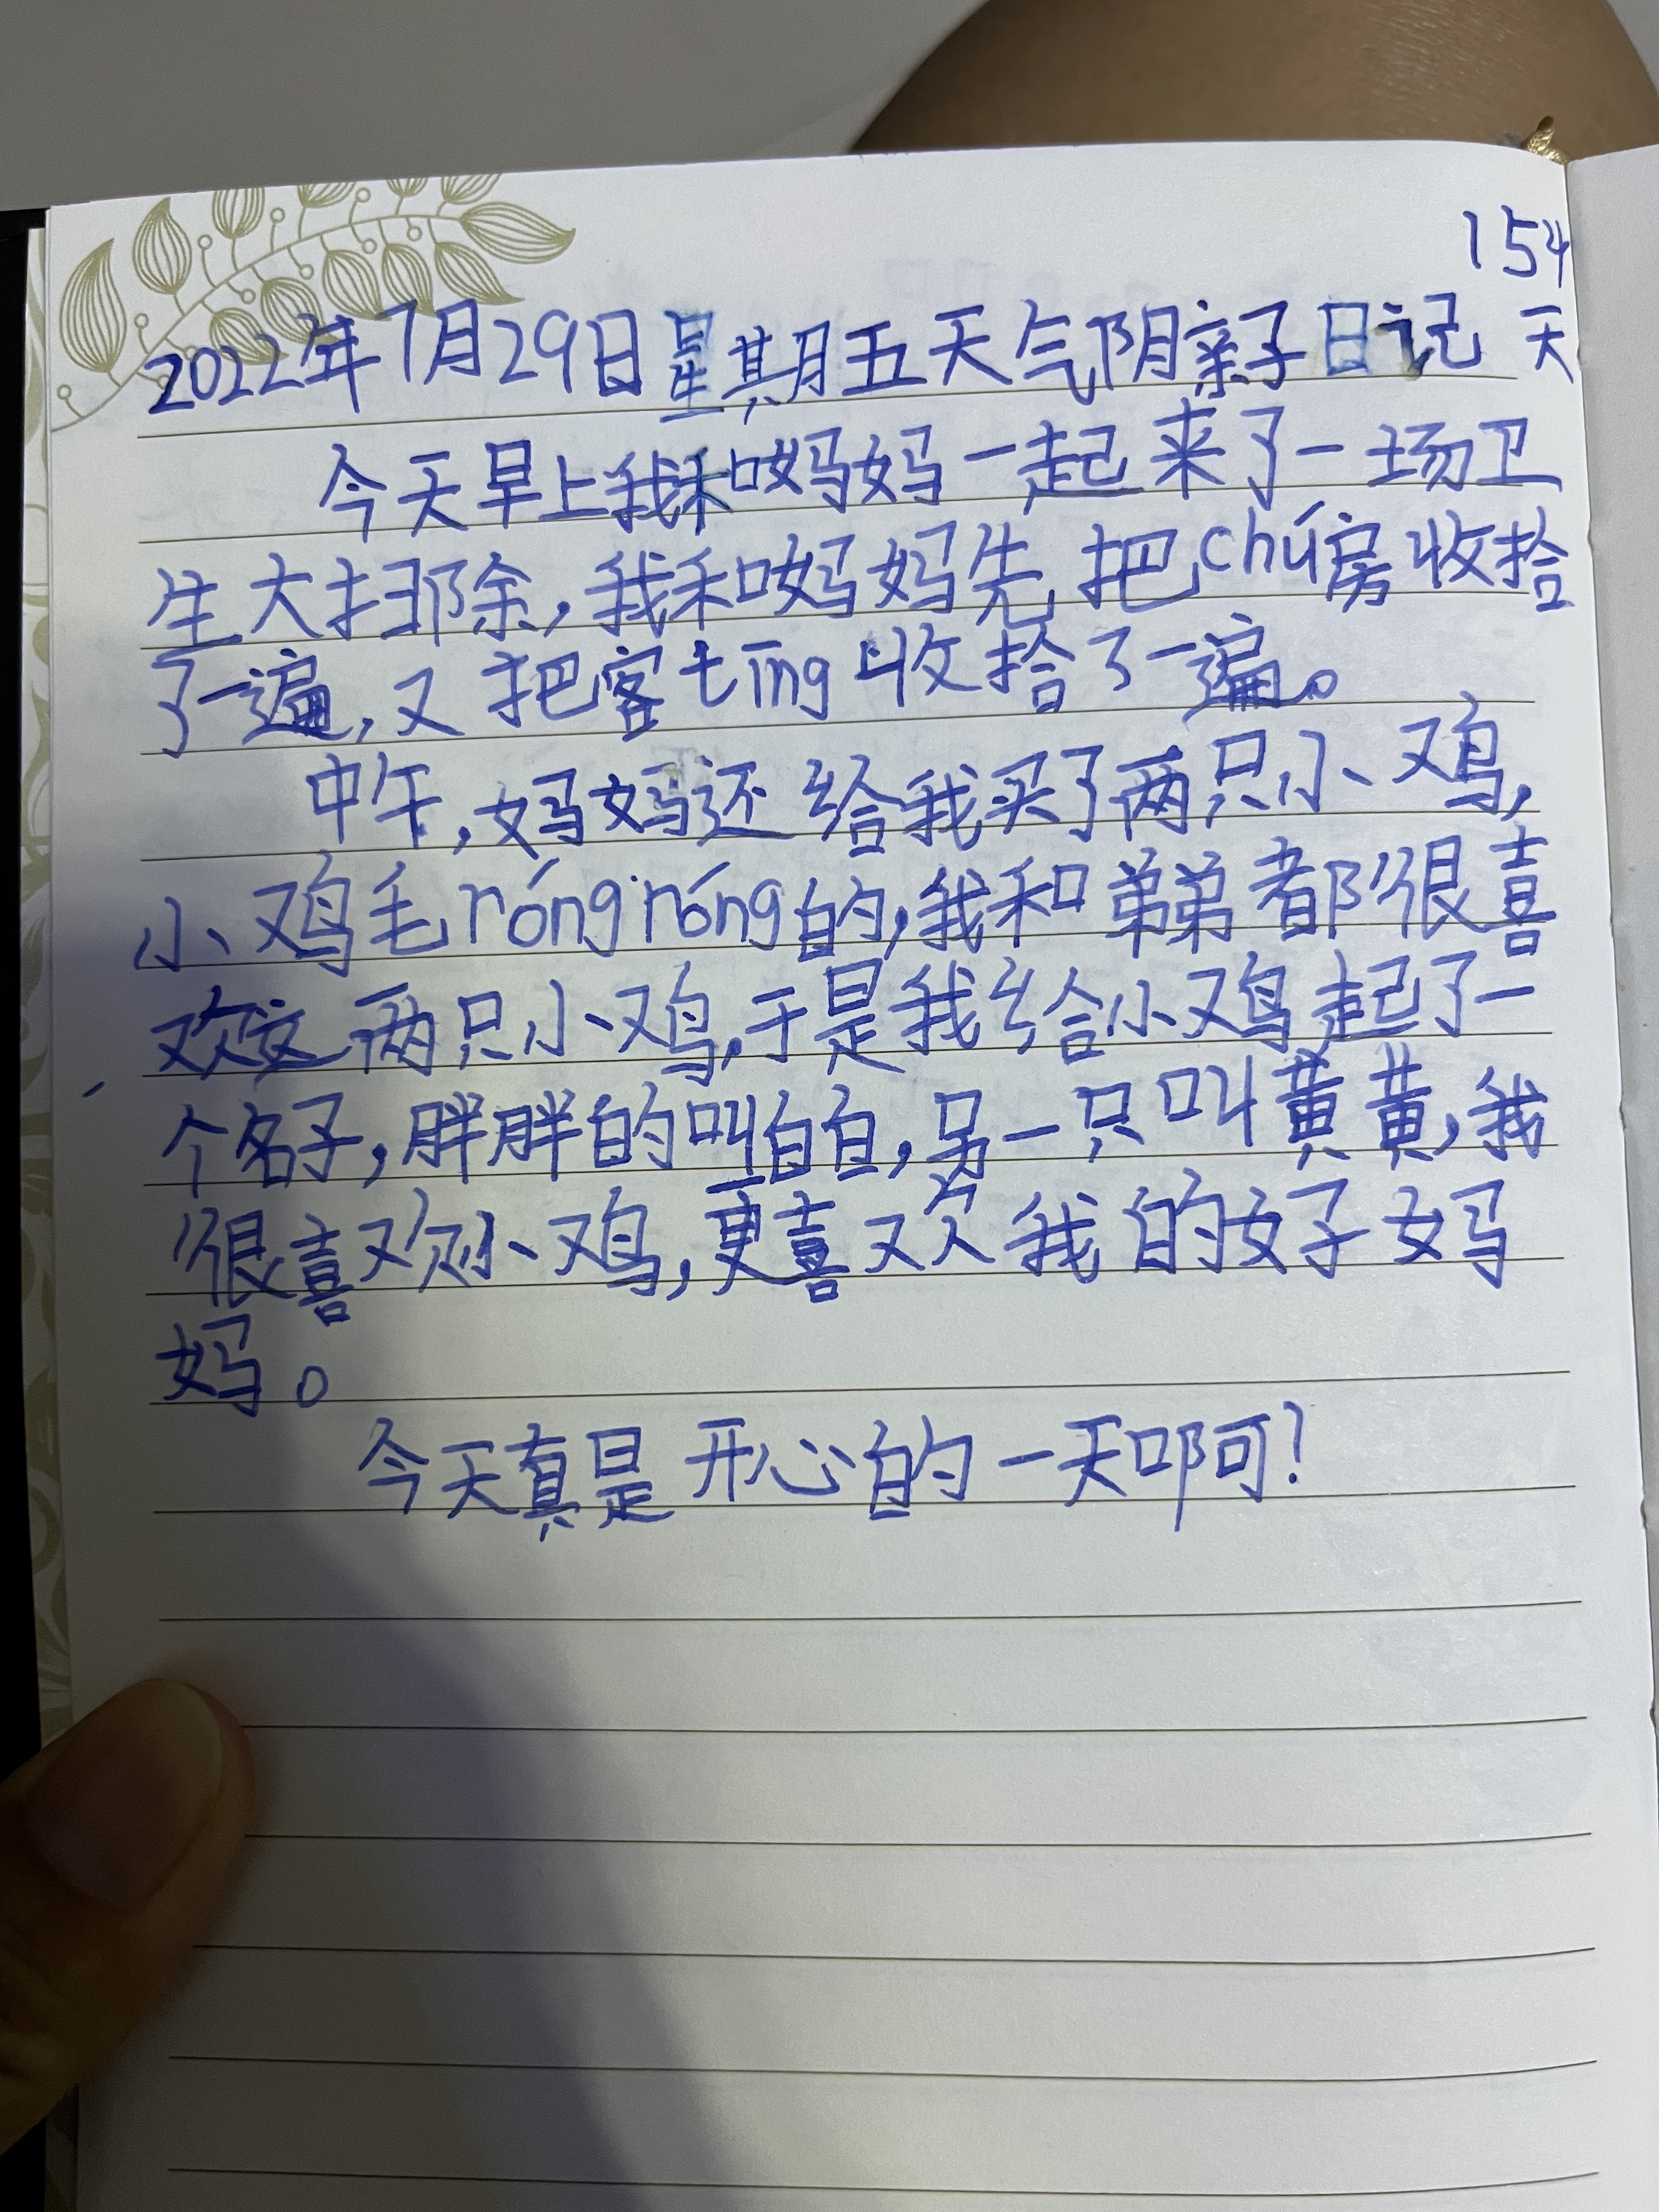 154
2022年7月29日星期五天气阴亲子日记 天
今天早上我和妈妈一起来了一场卫
生大扫除,我和妈妈先把chú房收拾
了一遍,又把客tīng收拾了一遍。
中午,妈妈还给我买了两只小鸡,
小鸡毛róngróng的,我和弟弟都很喜
欢这两只小鸡,于是我给小鸡起了一
个名子,胖胖的叫白白,另一只叫黄黄,我
很喜欢小鸡,更喜欢我的好妈
妈。
今天真是开心的一天啊?